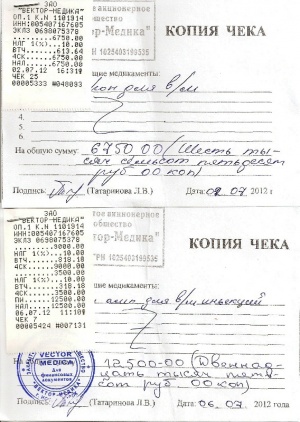 ЗАО
"ВЕКТОР-МЕДИКА"
ОП.1 К.N 1101914
ИНН:005407167605
ЭКЛЗ 0698075378
..........6750.00
НЛГ 1(%)..10.00
ВТЧ......613.64
4СК.....6750.00
НАЛ.....6750.00
02.07.12 16:31
ЧЕК 25
00005333 #048093
акционерное
общество
ор-Медика"
ГРН 1025403199535
КОПИЯ ЧЕКА
щие медикаменты:
для в/м
4.
5.
6.
На общую сумму: 6750 00 (Шесть ты-
сяч семьсот пятьдесят
руб 00 коп)
Подпись: (Татаринова Л.В.) Дата: 02 07 2012 г
ЗАО
"ВЕКТОР-МЕДИКА"
ОП.1 К.N 1101914
ИНН:005407167605
ЭКЛЗ 0698075378
..........9000.00
НЛГ 1(%)..10.00
ВТЧ......818.18
4СК.....9000.00
..........3500.00
НЛГ 1(%)..10.00
ВТЧ......318.18
4СК.....3500.00
ПИ.....12500.00
НАЛ....12500.00
06.07.12 11:11
ЧЕК 7
00005424 #007131
тое акционерное
общество
тор-Медика"
ГРН 1025403199535
КОПИЯ ЧЕКА
е медикаменты:
для в/м инъекций
VECTOR
MEDICA
Для
финансовых
документов
12500-00 (Двенад-
цать тысяч пять-
сот руб 00 коп)
Подпись: (Татаринова Л.В.) Дата: 06 07 2012 года